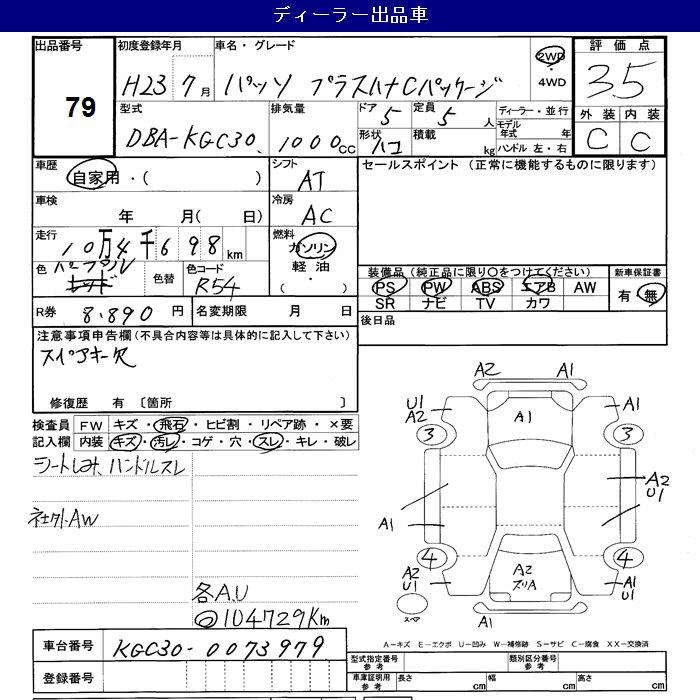 ディーラー出品車
出品番号 79
初度登録年月 H23 7月
車名・グレード パッソ プラスハナCパッケージ
2WD・4WD
評価点 3.5
型式 DBA-KGC30
排気量 1000cc
ドア 5 定員 5人
形状 ハコ 積載 kg
ディーラー・並行
モデル年式 年
ハンドル 左・右
外装 C 内装 C
車歴 自家用・( )
シフト AT
セールスポイント (正常に機能するものに限ります)
車検 年 月( 日)
冷房 AC
走行 10万4千698km
燃料 ガソリン 軽油 ・( )
色 パープル レッド 色替 色コード R54
装備品 (純正品に限り〇をつけてください) 新車保証書
PS PW ABS エアB AW 有・無
SR ナビ TV カワ
R券 8,890円 名変期限 月 日
後日品
注意事項申告欄 (不具合内容等は具体的に記入して下さい)
スペアキー欠
修復歴 有 〔箇所 〕
検査員 FW キズ・飛石・ヒビ割・リペア跡・×要
記入欄 内装 キズ・汚レ・コゲ・穴・スレ・キレ・破レ
シートしみ、ハンドルスレ
社外AW
各A.U
◎104729Km
A2 A1
U1 A2 A1 A1
3 3
A1 A2 U1
4 4
A2 U1 A2 ズリA A1 U1
スペア A1
A-キズ E-エクボ U-凹み W-補修跡 S-サビ C-腐食 XX-交換済
車台番号 KGC30-0073979
登録番号
型式指定番号 参考 類別区分番号 参考
車庫証明用 参考 長さ cm 幅 cm 高さ cm